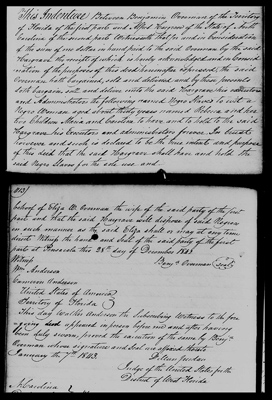 This Indenture Between Benjamin Overman of the Territory
of Florida of the first part and Alfred Hargrave of the State of N.
Carolina of the second part Witnesseth that for and in Consideration
of the sum of one dollar in hand paid to the said Overman by the said
Hargrave the receipt of which is hereby acknowledged and in Consid-
eration of the purposes of this deed hereinafter expressed, the said
Overman hath bargained, sold and delivered and by these presents
doth bargain, sell and deliver unto the said Hargrave, his executors
and Administrators the following named Negro Slaves to wit a
Negro Woman aged about thirty years named and her
two Children Maria and Caroline to have and to hold to the said
Hargrave, his Executors and administrators forever. In trust
however, and such is declared to be the true intent and purpose
of this deed that the said Hargrave shall have and hold the
said Negro Slaves for the sole use and
behoof of Eliza W. Overman the wife of the said party of the first
part and that the said Hargrave will dispose of said Negroes
in such manner as the said Eliza shall or may at any time
direct. Witness the hand and Seal of the said party of the first
part at Pensacola this 28th day of December 1843.
Witness Benj. Overman (Seal)
Wm Anderson
Cameron Anderson
United States of America
Territory of Florida
This day Walker Anderson the Subscribing Witness to the fore-
going deed appeared in person before me and after having
been duly sworn, proved the execution of the same by Benj.
Overman whose signature and Seal are affixed thereto
January the 7th 1843. Dillon Jordan
Judge of the United States for the
District of West Florida
N. Carolina